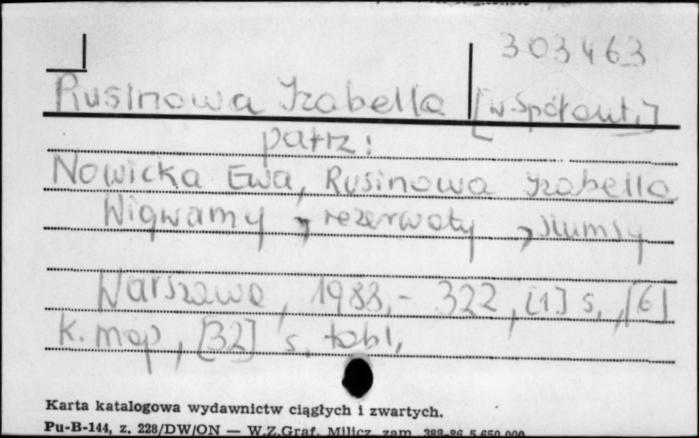 303463
Rusinowa Izabella [współaut.]
patrz:
Nowicka Ewa, Rusinowa Izabella
Wigwamy, rezerwaty, slumsy
Warszawa, 1988,- 322, [1] s., [6]
k. map, [32] s. tabl.
Karta katalogowa wydawnictw ciągłych i zwartych.
Pu-B-144, z. 228/DW/ON — W.Z.Graf. Milicz zam. 388-86 5.650.000